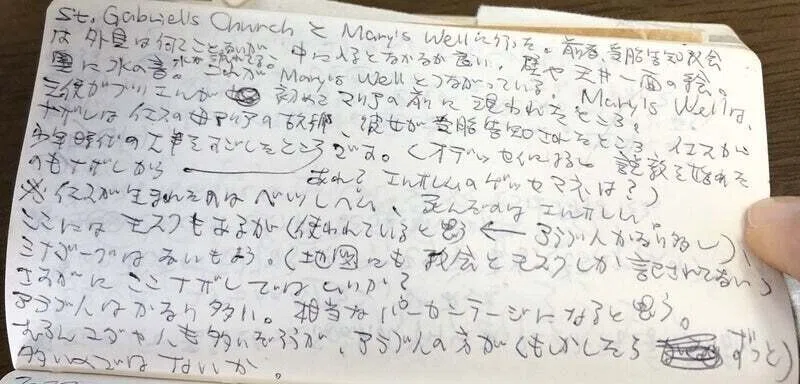 St. Gabriel's Church と Mary's Well に行った。前者、受胎告知教会
は外見は何てことないが、中に入るとなかなか良い。壁や天井一面の絵。
に水の音。水が流れてる。これが Mary's Well とつながっている。Mary's Wellは、
天使ガブリエルが初めてマリアの前に現われたところ。
ナザレはイエスの母マリアの故郷、彼女が受胎告知されたところ、イエスが
少年時代の大半をすごしたところです。(オデッセイによると 説教を始めた
のもナザレから あれ？エルサレムのゲッセマネは？)
※イエスが生まれたのはベツレヘム、死んだのはエルサレム
ここにはモスクもあるが(使われていると思う ← アラブ人がかなり多いし)、
シナゴーグはないもよう。(地図にも教会とモスクしか記されてない)
さすがにここナザレではいいか？
アラブ人はかなり多い。相当なパーセンテージになると思う。
もちろんユダヤ人も多いだろうが、アラブ人の方が(もしかしたら ずっと)
多いのではないか。